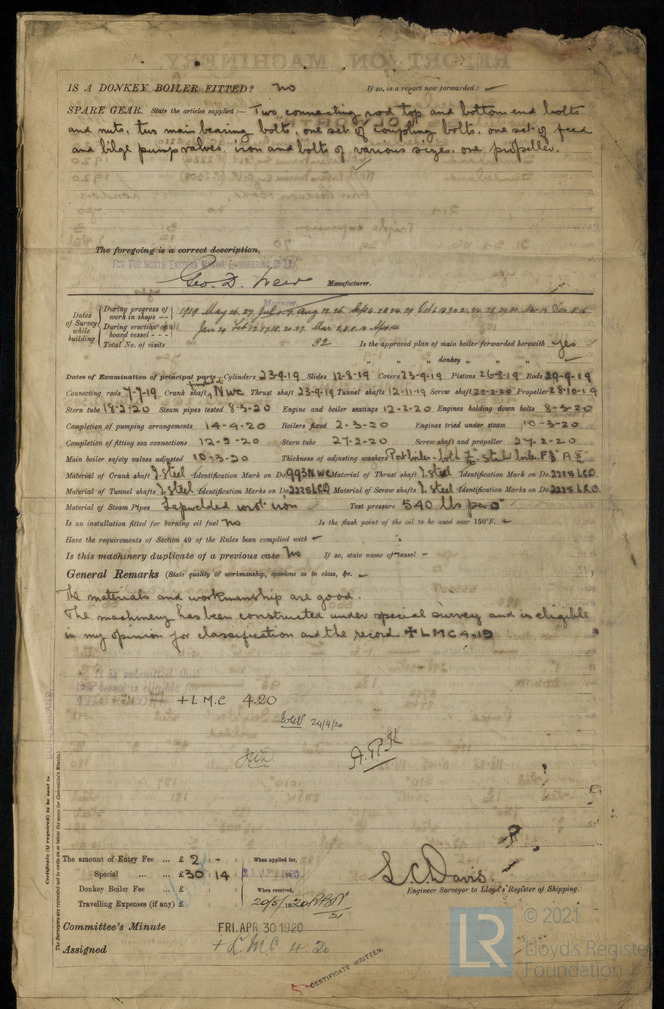 IS A DONKEY BOILER FITTED? no If so, is a report now forwarded? –
SPARE GEAR. State the articles supplied :— Two connecting rod top and bottom end bolts
and nuts, two main bearing bolts, one set of coupling bolts, one set of feed
and bilge pump valves, iron and bolts of various sizes, one propeller.
The foregoing is a correct description,
FOR THE NORTH EASTERN MARINE ENGINEERING Co Ld
Geo. D. Weir Manufacturer.
Dates of Survey while building
During progress of work in shops - - 1919 May 26. 27.
During erection on board vessel - - -
Total No. of visits 32 Is the approved plan of main boiler forwarded herewith Yes
" " " donkey " " "
Dates of Examination of principal parts Cylinders 23-9-19 Slides 12-8-19 Covers 23-9-19 Pistons 26-8-19 Rods 29-9-19
Connecting rods 7-7-19 Crank shaft NWC Thrust shaft 23-9-19 Tunnel shafts 12-11-19 Screw shaft 20-2-20 Propeller 28-10-19
Stern tube 18-2-20 Steam pipes tested 8-3-20 Engine and boiler seatings 12-2-20 Engines holding down bolts 8-3-20
Completion of pumping arrangements 14-4-20 Boilers fixed 2-3-20 Engines tried under steam 10-3-20
Completion of fitting sea connections 12-2-20 Stern tube 27-2-20 Screw shaft and propeller 27-2-20
Main boiler safety valves adjusted 10-3-20 Thickness of adjusting washers Port boiler - both
Material of Crank shaft I. Steel Identification Mark on Do. 993NWC Material of Thrust shaft I. Steel Identification Mark on Do. 2225 LCD
Material of Tunnel shafts I. Steel Identification Marks on Do. 2225 LCD Material of Screw shafts I. Steel Identification Marks on Do. 2225 LCD
Material of Steam Pipes Lapwelded wrot iron Test pressure 540 lbs per □"
Is an installation fitted for burning oil fuel no Is the flash point of the oil to be used over 150°F. –
Have the requirements of Section 49 of the Rules been complied with –
Is this machinery duplicate of a previous case No If so, state name of vessel –
General Remarks (State quality of workmanship, opinions as to class, &c. –
The materials and workmanship are good.
The machinery has been constructed under special survey and is eligible
in my opinion for classification and the record +LMC 4.19
It is submitted that
this vessel is eligible for
+ L.M.C 4.20
24/4/20
A.R.K
Certificate (if required) to be sent to
The amount of Entry Fee ... £ 2 : - When applied for,
Special ... ... £ 30 : 14
Donkey Boiler Fee ... £ When received,
Travelling Expenses (if any) £ 20/5/1920
L.C. Davis.
Engineer Surveyor to Lloyd's Register of Shipping.
Committee's Minute FRI. APR 30 1920
Assigned + L.M.C 4.20
CERTIFICATE WRITTEN.
LR © 2021
Lloyd's Register
Foundation